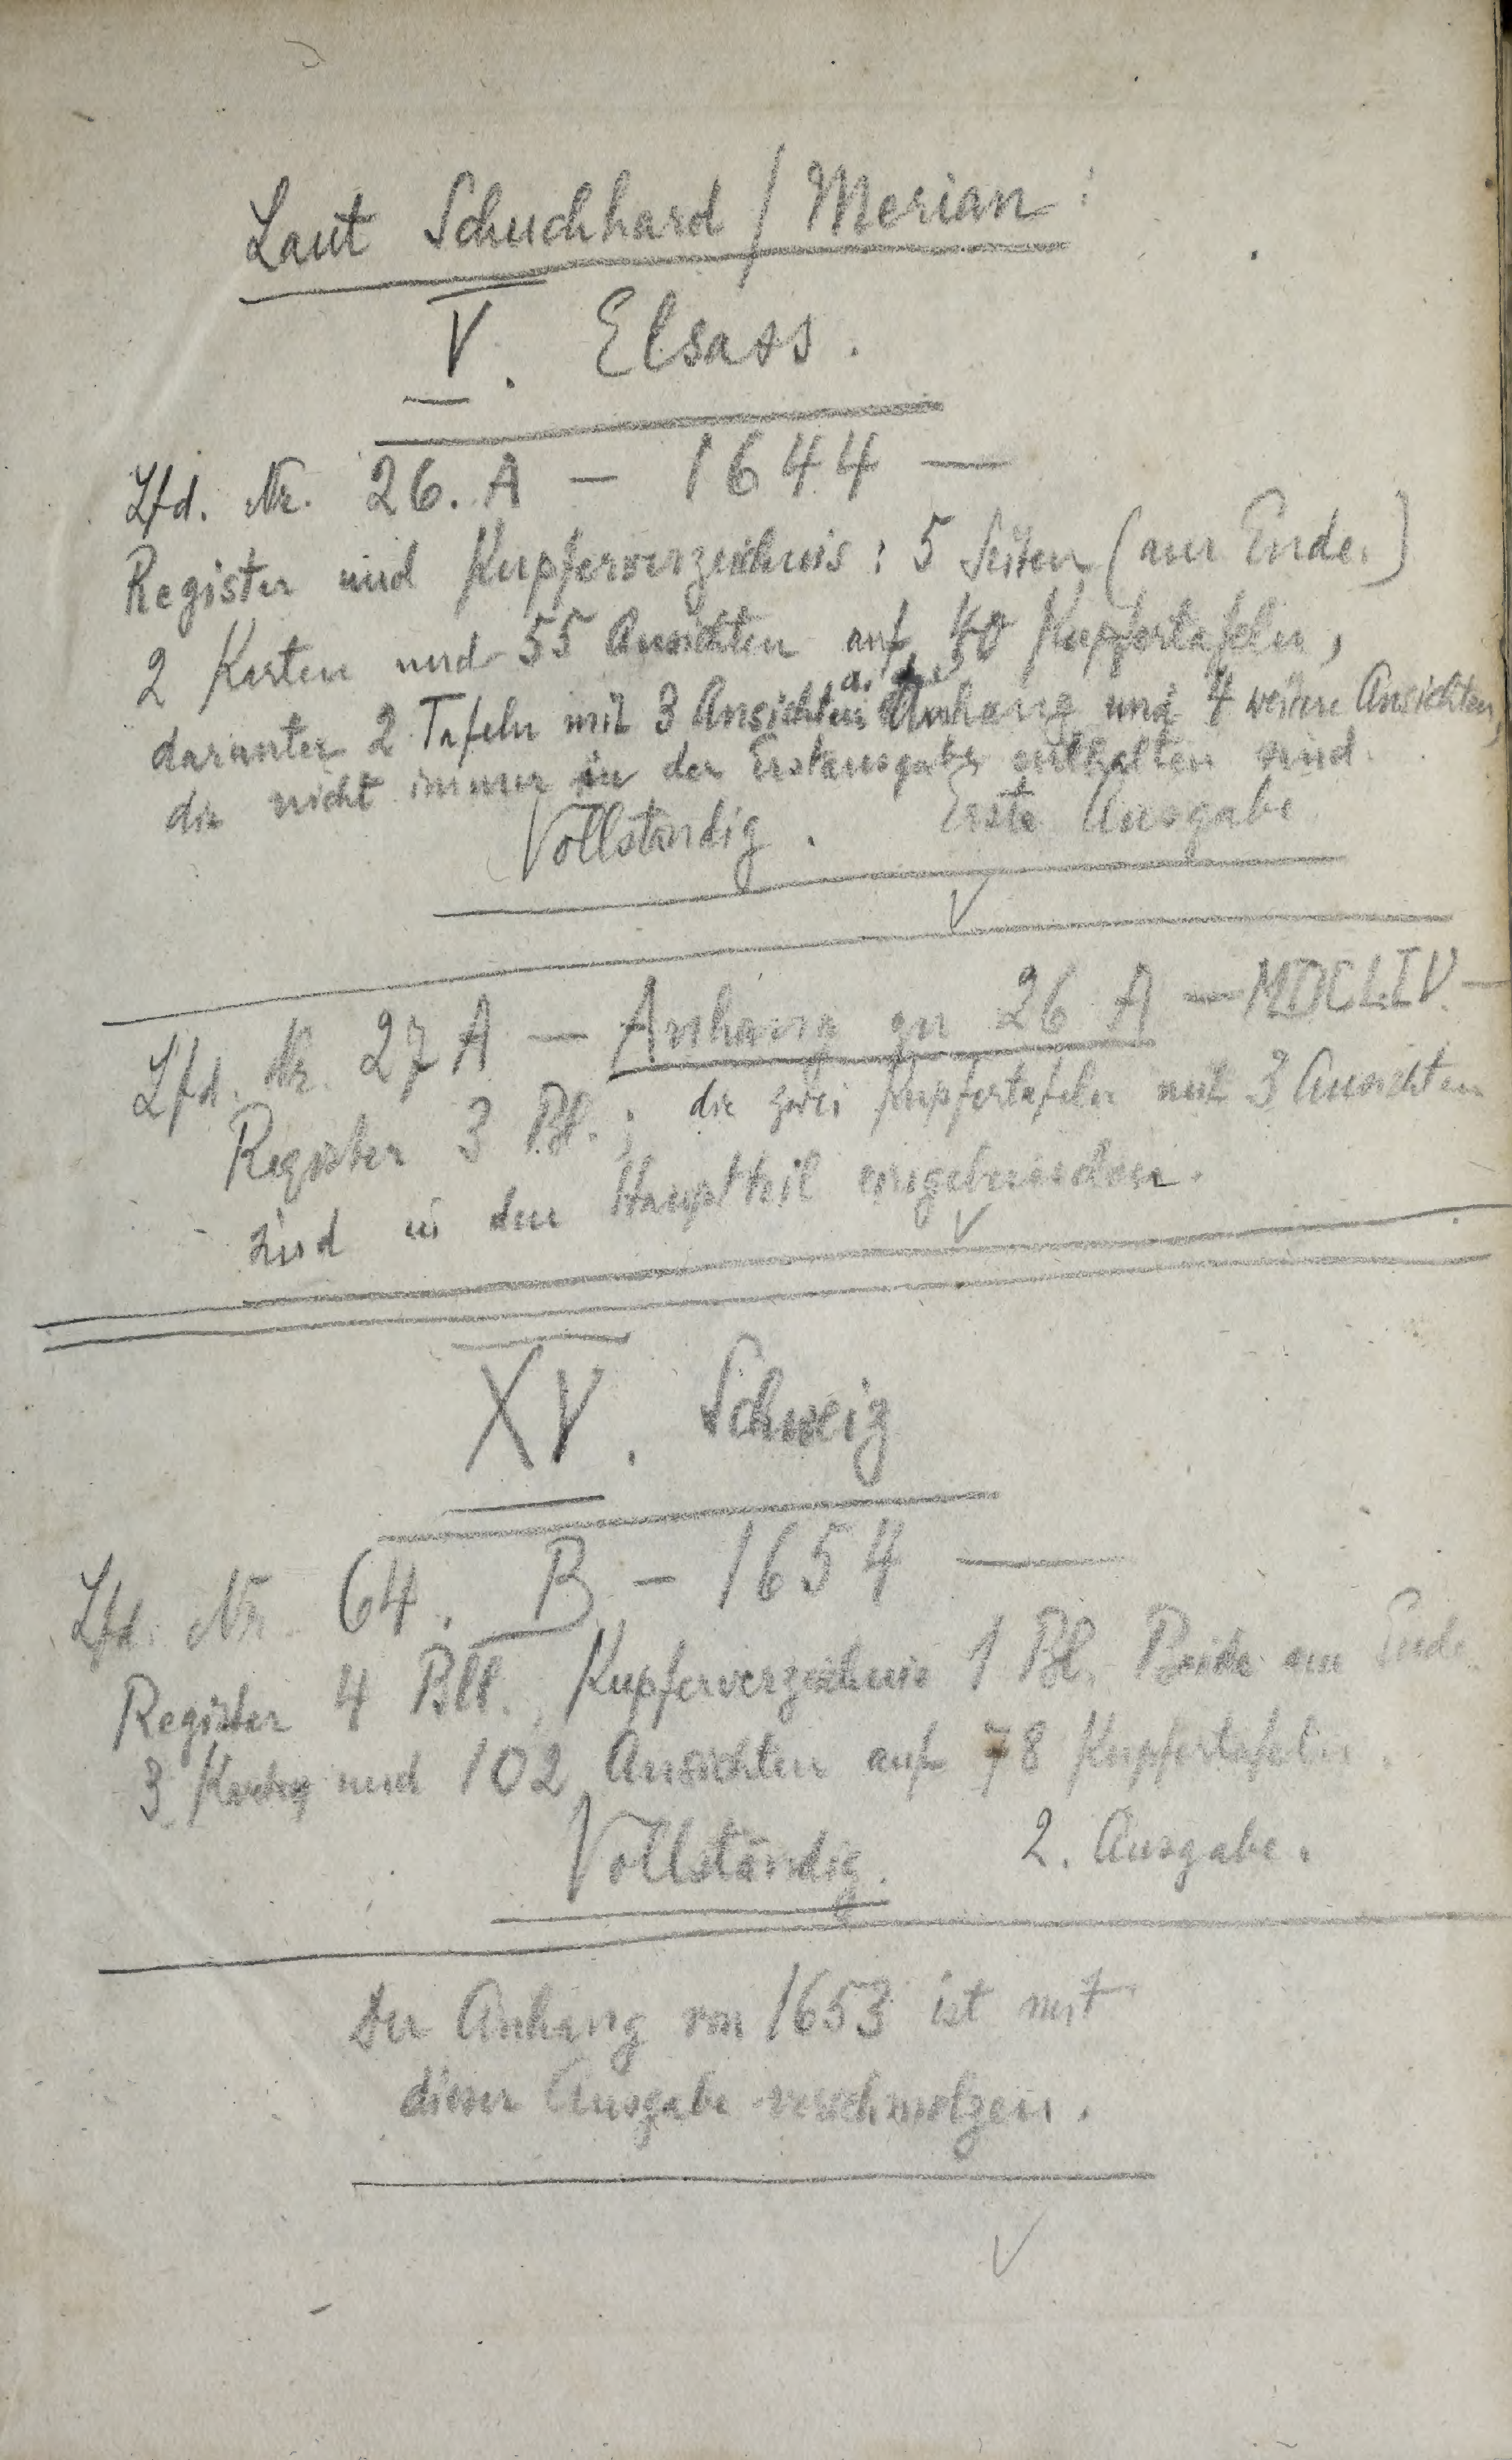 Laut Schuchhard / Merian:
V. Elsass.
Lfd. Nr. 26. A – 1644 —
Register und Kupferverzeichnis: 5 Seiten (am Ende.)
2 Karten und 55 Ansichten auf 40 Kupfertafeln,
darunter 2 Tafeln mit 3 Ansichten a. d. Anhang und 4 weitere Ansichten,
die nicht immer in der Erstausgabe enthalten sind.
Vollständig. Erste Ausgabe
Lfd. Nr. 27 A – Anhang zu 26 A – MDCLIV. –
Register 3 Bl.; die zwei Kupfertafeln mit 3 Ansichten
sind in den Hauptteil eingebunden.
XV. Schweiz
Lfd. Nr. 64. B – 1654 —
Register 4 Bll., Kupferverzeichnis 1 Bl. Beide am Ende.
3 Karten und 102 Ansichten auf 78 Kupfertafeln.
Vollständig. 2. Ausgabe.
Der Anhang von 1653 ist mit
dieser Ausgabe verschmolzen.